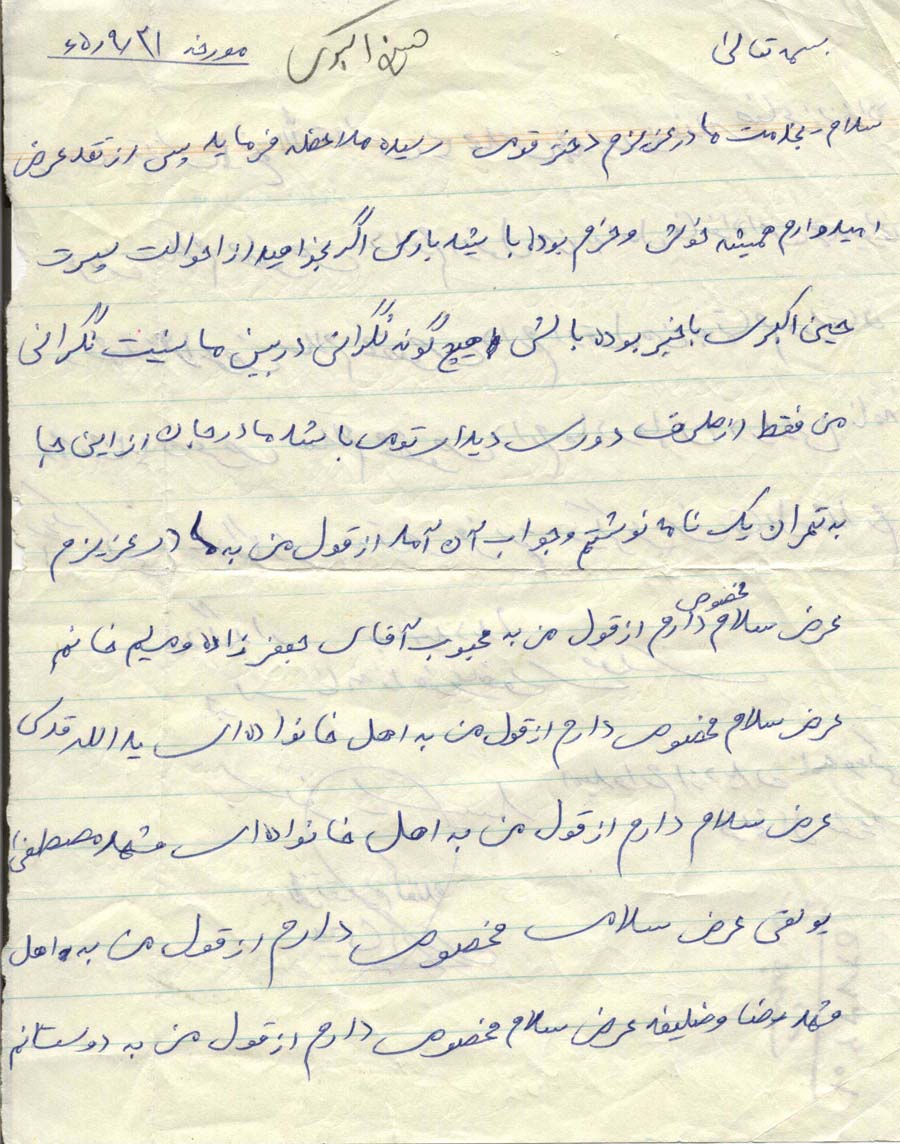 بسمه تعالی
حسین اکبری
مورخه ۶۵/۹/۲۱
سلام - بخدمت مادر عزیزم دختر قومی رسیده ملاحظه فرماید پس از تقد عرض
امیدوارم همیشه خوش و خرم بوده باشید باری اگر بخواهید از احوالت پسرت
حسین اکبری باخیر بوده باش هیچ گونه نگرانی در بین ما نیست نگرانی
من فقط از طرف دوری دیدار تومی باشد مادر جان از این جا
به تهران یک نامه نوشتم و جواب آن آمد از قول من به مادر عزیزم
عرض سلام مخصوص دارم از قول من به محبوب آقای جعفر زاده و مریم خانم
عرض سلام مخصوص دارم از قول من به اهل خانواده ای ید الله قدمی
عرض سلام دارم از قول من به اهل خانواده ای مشهد مصطفی
یوسفی عرض سلامی مخصوص دارم از قول من به اهل
مشهد رضا وضلیفه عرض سلام مخصوص دارم از قول من به دوستانم